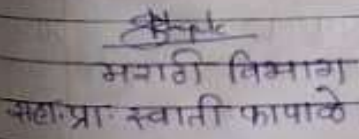 मराठी विभाग
सहा.प्रा. स्वाती कापाळे